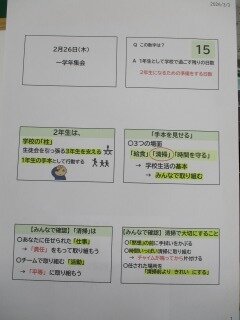 2026/3/3
2月26日(木)
一学年集会
Q この数字は？
15
A 1年生として学校で過ごす残りの日数
2年生になるための準備をする日数
2年生は、
学校の「柱」
生徒会を引っ張る3年生を支える
1年生の手本として行動する
「手本を見せる」
〇3つの場面
「給食」「清掃」「時間を守る」
→ 学校生活の基本
→ みんなで取り組む
【みんなで確認】「清掃」は
〇あなたに任せられた「仕事」
→ 「責任」をもって取り組もう
〇チームで取り組む「活動」
→ 「平等」に取り組もう
【みんなで確認】清掃で大切にすること
〇「黙想」の前に手伝いをかぶる
〇時間いっぱい清掃に取り組む
→ チャイムが鳴ってから片付ける
〇任された場所を
「清掃前より きれい」にする